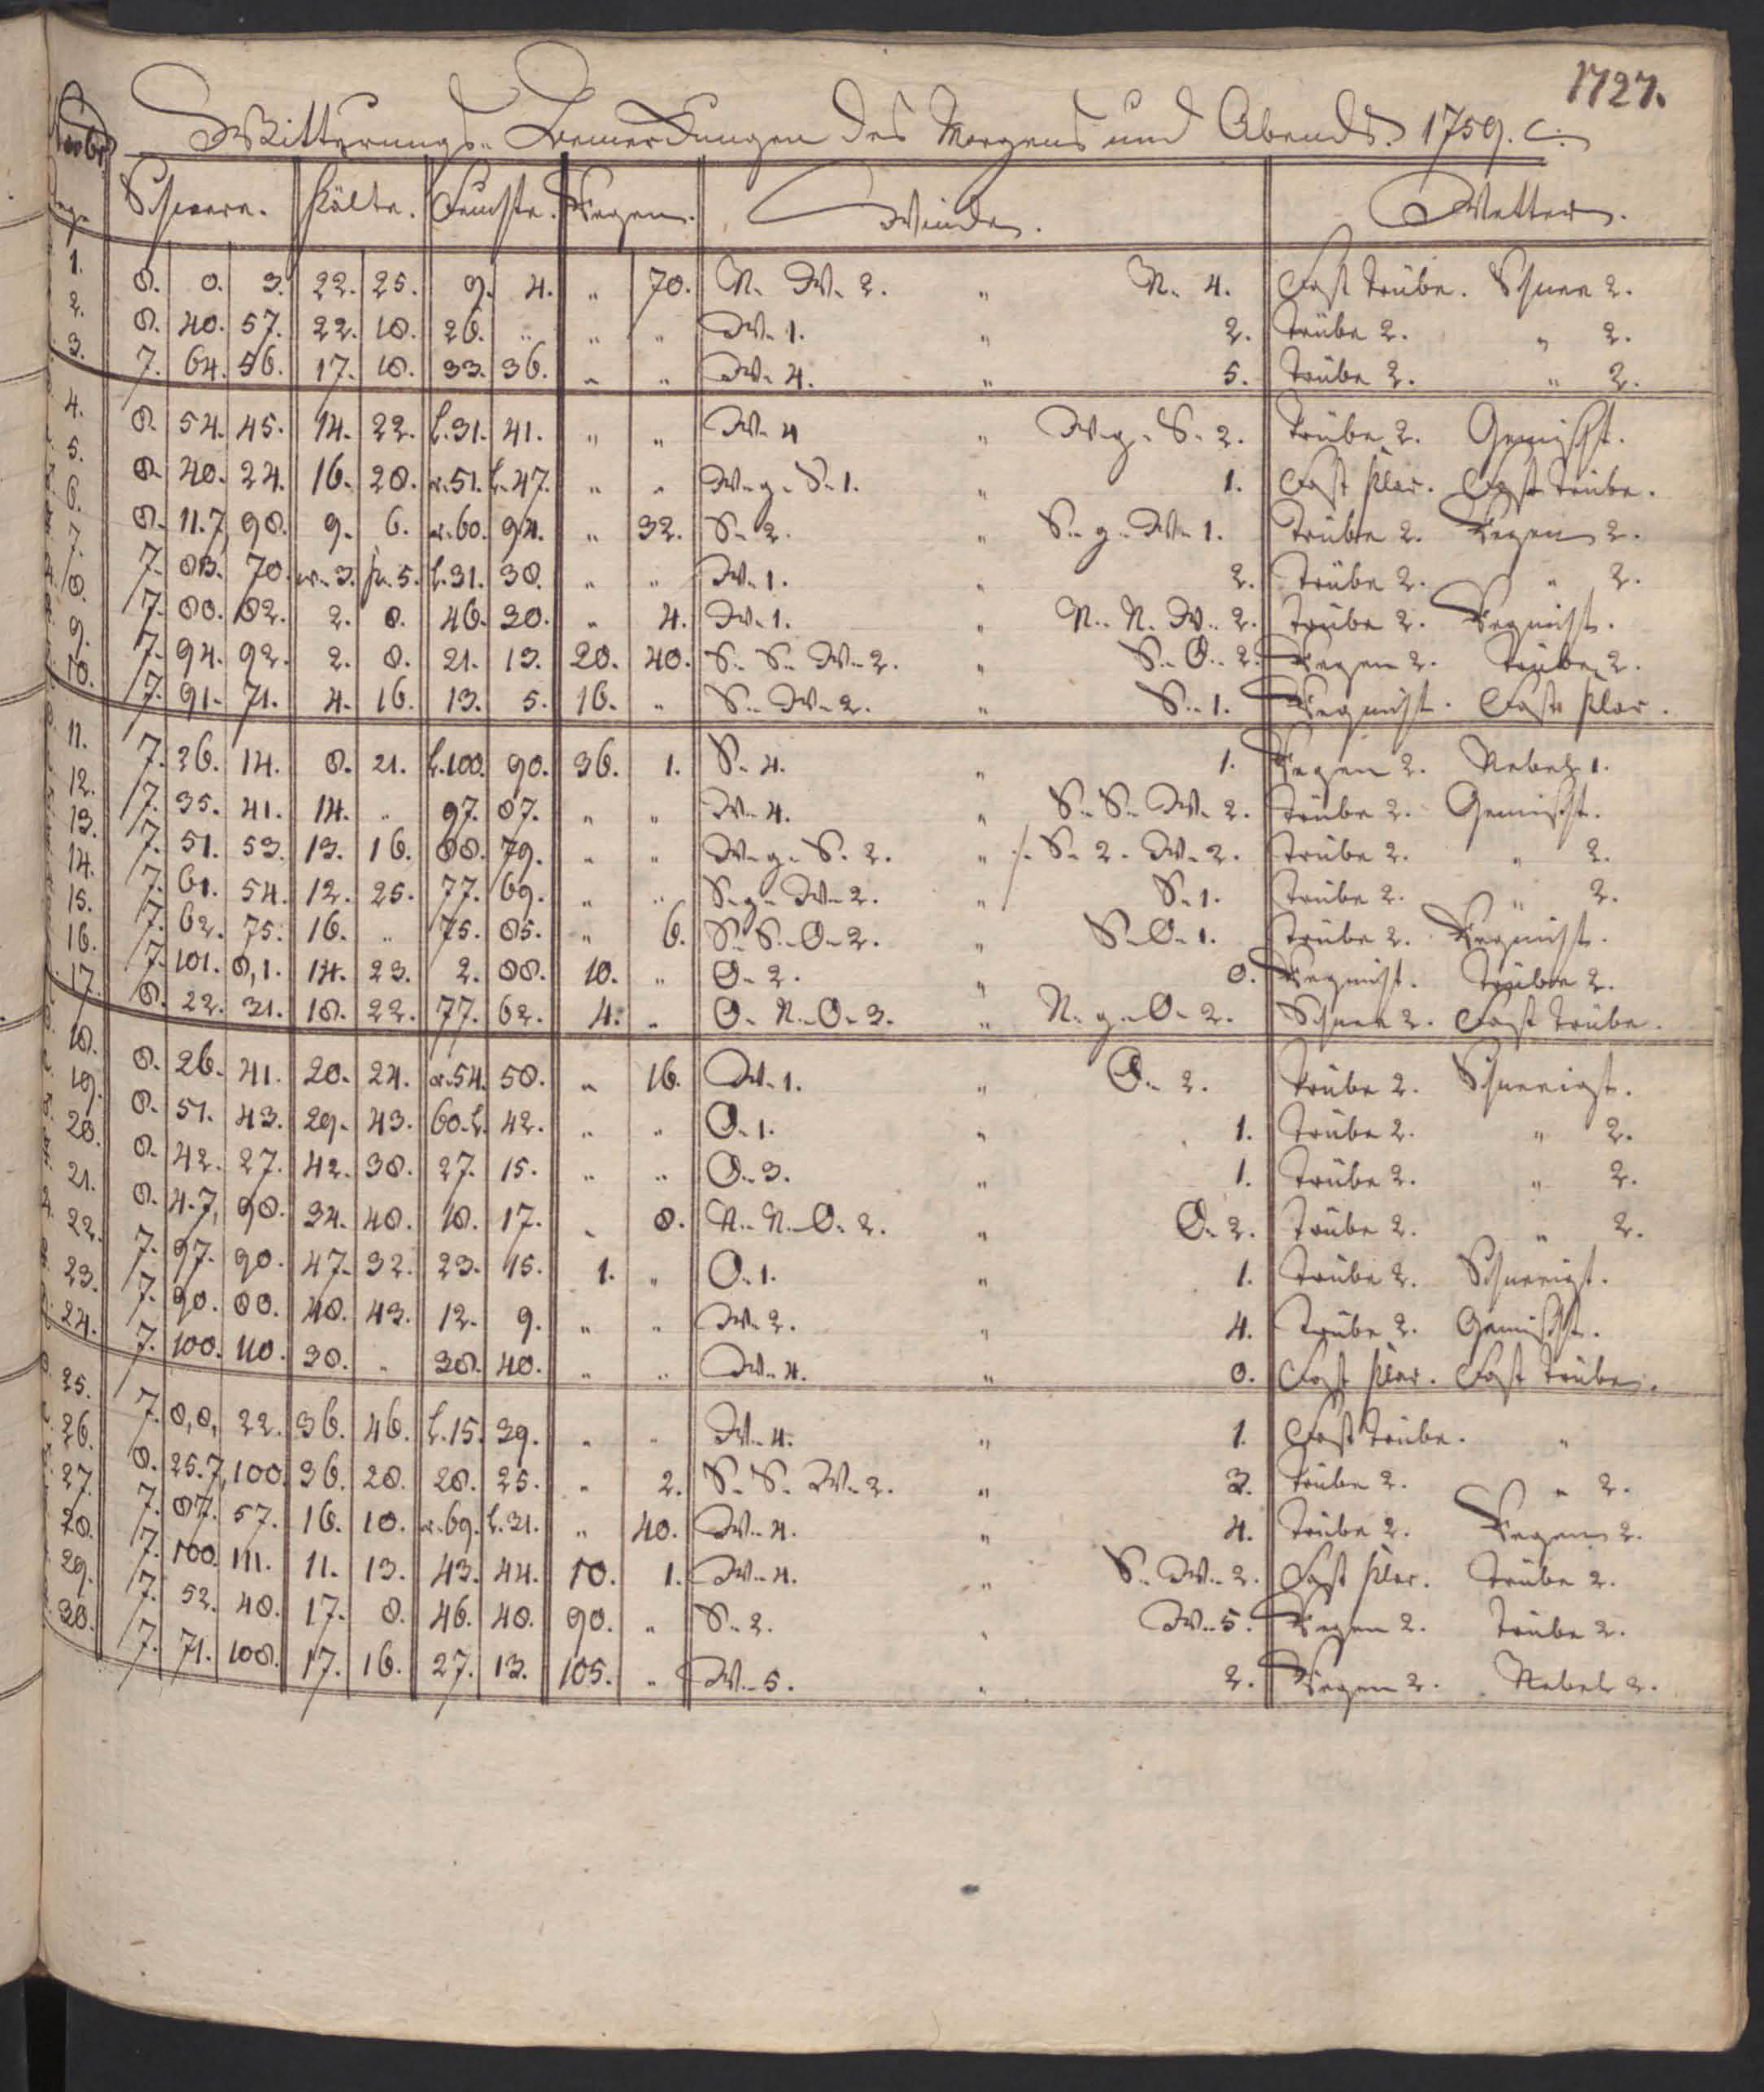 1727.
Witterungs-Bemerckungen des Morgens und Abends. 1759.
Schwere. Kälte. Feuchte. Regen. Winde. Wetter.
1. 8. 0. 3. 22. 25. 9. 4. " 70. N. W. 2. " N. 4. Fast trübe. Schnee 2.
2. 8. 40. 57. 22. 18. 26. " " " W. 1. " 2. trübe 2. " 2.
3. 7. 64. 56. 17. 18. 33. 36. " " W. 4. " 5. trübe 2. " 2.
4. 8. 54. 45. 14. 22. l. 31. 41. " " W. 4 " W. g. S. 2. trübe 2. Gemischt.
5. 8. 40. 24. 16. 20. r. 51. l. 47. " " W. g. S. 1. " 1. Fast klar. Fast trübe.
6. 8. 11. 7, 98. 9. 6. r. 60. 94. " 32. S. 2. " S. g. W. 1. trübe 2. Regen 2.
7. 7. 83. 70. w. 3. k. 5. l. 31. 38. " " W. 1. " 2. trübe 2. " 2.
8. 7. 80. 82. 2. 8. 46. 30. " 4. W. 1. " N. N. W. 2. trübe 2. Regnicht.
9. 7. 94. 92. 2. 8. 21. 13. 20. 40. S. S. W. 2. " S. O. 2. Regen 2. trübe 2.
10. 7. 91. 71. 4. 16. 13. 5. 16. " S. W. 2. " S. 1. Regnicht. Fast klar.
11. 7. 26. 14. 8. 21. l. 100. 90. 36. 1. S. 4. " 1. Regen 2. Nebel 1.
12. 7. 35. 41. 14. " 97. 87. " " W. 4. " S. S. W. 2. trübe 2. Gemischt.
13. 7. 51. 53. 13. 16. 88. 79. " " W. g. S. 2. " S. 2. W. 2. trübe 2. " 2.
14. 7. 61. 54. 12. 25. 77. 69. " " S. g. W. 2. " S. 1. trübe 2. " 2.
15. 7. 62. 75. 16. " 75. 85. " 6. S. S. O. 2. " S. O. 1. trübe 2. Regnicht.
16. 7. 101. 8, 1. 14. 23. 2. 88. 10. " O. 2. " 0. Regnicht. trübe 2.
17. 8. 22. 31. 18. 22. 77. 62. 4. " O. N. O. 3. " N. g. O. 2. Schnee 2. Fast trübe.
18. 8. 26. 41. 20. 24. r. 54. 50. " 16. W. 1. " O. 2. trübe 2. Schneeigt.
19. 8. 51. 43. 29. 43. 60. l. 42. " " O. 1. " 1. trübe 2. " 2.
20. 8. 42. 27. 42. 38. 27. 15. " " O. 3. " 1. trübe 2. " 2.
21. 8. 4. 7, 98. 34. 40. 18. 17. " 8. N. N. O. 2. " O. 2. trübe 2. " 2.
22. 7. 97. 90. 47. 32. 23. 15. 1. " O. 1. " 1. trübe 2. Schneeigt.
23. 7. 90. 80. 48. 43. 12. 9. " " W. 2. " 4. trübe 2. Gemischt.
24. 7. 100. 110. 30. " 38. 40. " " W. 4. " 0. Fast klar. Fast trübe.
25. 7. 8, 8, 22. 36. 46. l. 15. 39. " " W. 4. " 1. Fast trübe. "
26. 8. 25. 7, 100. 36. 28. 28. 25. " 2. S. S. W. 2. " 3. trübe 2. " 2.
27. 7. 87. 57. 16. 10. r. 69. l. 31. " 40. W. 4. " 4. trübe 2. Regen 2.
28. 7. 100. 111. 11. 13. 43. 44. 10. 1. W. 4. " S. W. 2. Fast klar. trübe 2.
29. 7. 52. 48. 17. 8. 46. 48. 90. " S. 2. " W. 5. Regen 2. trübe 2.
30. 7. 71. 108. 17. 16. 27. 13. 105. " W. 5. " 2. Regen 2. Nebel 2.